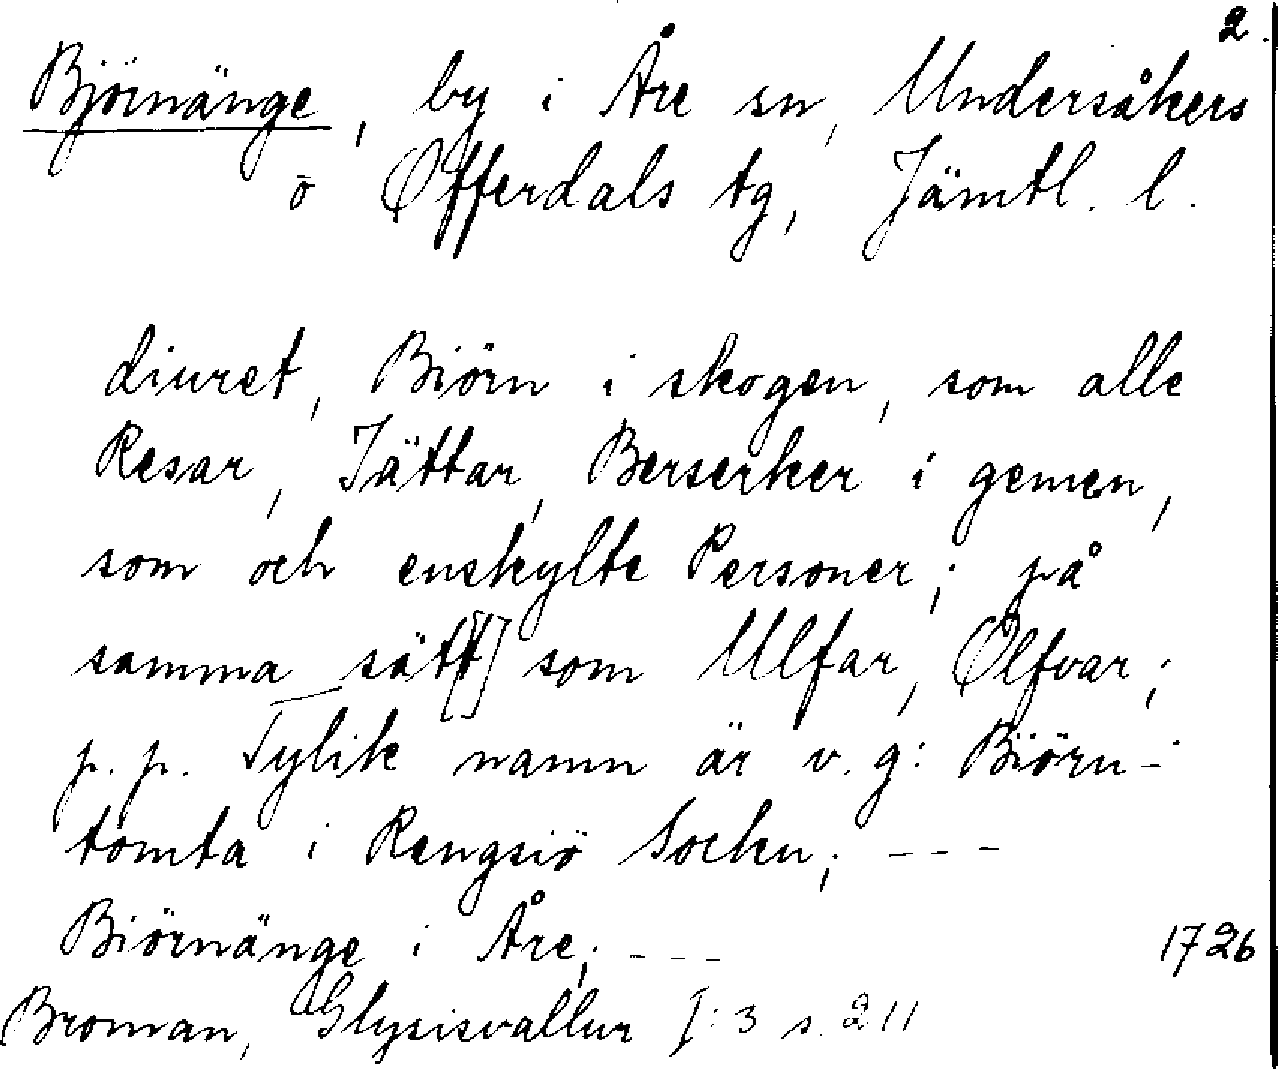 2.
Björnänge, by i Åre sn, Undersåkers
o Offerdals tg, Jämtl. l.
diuret, Biörn i skogen, som alle
Resar, Jättar, Berserker i gemen,
som och enskylte Personer; på
samma sätt[t] som Ulfar, Olfvar;
p.p. Tylik namn är v.g: Biörn-
tomta i Rengsiö Sockn; ---
Biörnänge i Åre; ---
1726
Broman, Glysisvallur I:3 s. 211